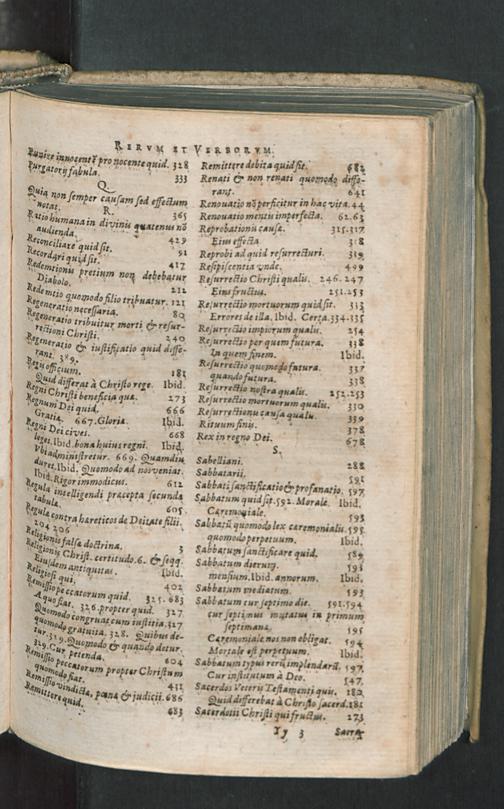 RERVM ET VERBORVM.
Punire innocentē pro nocente quid. 328
Purgatorij fabula. 333
Q.
Quia non semper causam sed effectum
notat. 365
R.
Ratio humana in divinis quatenus nō
audienda. 429
Reconciliare quid sit. 91
Recordari quid sit. 417
Redemtionis pretium non debebatur
Diabolo. 212
Redemtio quomodo filio tribuatur. 121
Regeneratio necessaria. 80
Regeneratio tribuitur morti & resur-
rectioni Christi. 240
Regeneratio & iustificatio quid diffe-
rant. 389.
Regū officium. 181
Quid differat à Christo rege. Ibid.
Regni Christi beneficia qua. 273
Regnum Dei quid. 666
Gratia. 667. Gloria. Ibid.
Regni Dei cives. 668
leges. Ibid. bona huius regni. Ibid.
Vbi administretur. 669. Quamdiu
duret. Ibid. Quomodo ad nos veniat.
Ibid. Rigor immodicus. 612
Regula intelligendi præcepta secunda
tabula. 605
Regula contra hareticos de Deitate filii.
204 206
Religionis falsa doctrina. 3
Religionis Christ. certitudo. 6. & seqq.
Eiusdem antiquitas. Ibid.
Religiosi qui. 402
Remissio peccatorum quid. 325. 683
A quo fiat. 326. propter quid. 327
Quomodo congruat cum iustitia. 327
quomodo gratuita. 328. Quibus de-
tur. 329. Quomodo & quando detur.
329. Cur petenda. 604
Remissio peccatorum propter Christum
quomodo fiat. 431
Remissio vindicta, pœna & iudicii. 686
Remittere quid. 683
Remittere debita quid sit. 682
Renati & non renati quomodo diffe-
rant. 641
Renovatio nō perficitur in hac vita. 44
Renovatio mentis imperfecta. 62. 63
Reprobationis causa. 315. 317
Eius effecta 318
Reprobi ad quid resurrecturi. 319
Resipiscentia unde. 499
Resurrectio Christi qualis. 246. 247
Eius fructus. 251. 253
Resurrectio mortuorum quid sit. 313
Errores de illa. Ibid. Certa. 334. 335
Resurrectio impiorum qualis. 254
Resurrectio per quem futura. 338
In quem finem. Ibid.
Resurrectio quomodo futura. 337
quando futura. 338
Resurrectio nostra qualis. 252. 253
Resurrectio mortuorum qualis. 330
Resurrectionis causa qualis. 339
Rituum finis. 378
Rex in regno Dei. 678
S.
Sabelliani. 288
Sabbatarii. 591
Sabbati sanctificatio & profanatio. 597
Sabbatum quid sit. 592. Morale. Ibid.
Cæremoniale. 593
Sabbatū quomodo lex ceremonialis. 595
quomodo perpetuum. Ibid.
Sabbatum sanctificare quid. 589
Sabbatum dierum. 593
mensium. Ibid. annorum. Ibid.
Sabbatum mediatum. 593
Sabbatum cur septimo die. 592. 594
cur septimus mutatus in primum
septimanæ. 595
Caremoniale nos non obligat. 594
Morale est perpetuum. Ibid.
Sabbatum typus rerū implendarū. 597
Cur institutum à Deo. 547
Sacerdos Veteris Testamenti quis. 180
Quid differebat à Christo sacerd. 181
Sacerdotii Christi qui fructus. 273
Yy 3 Sacra